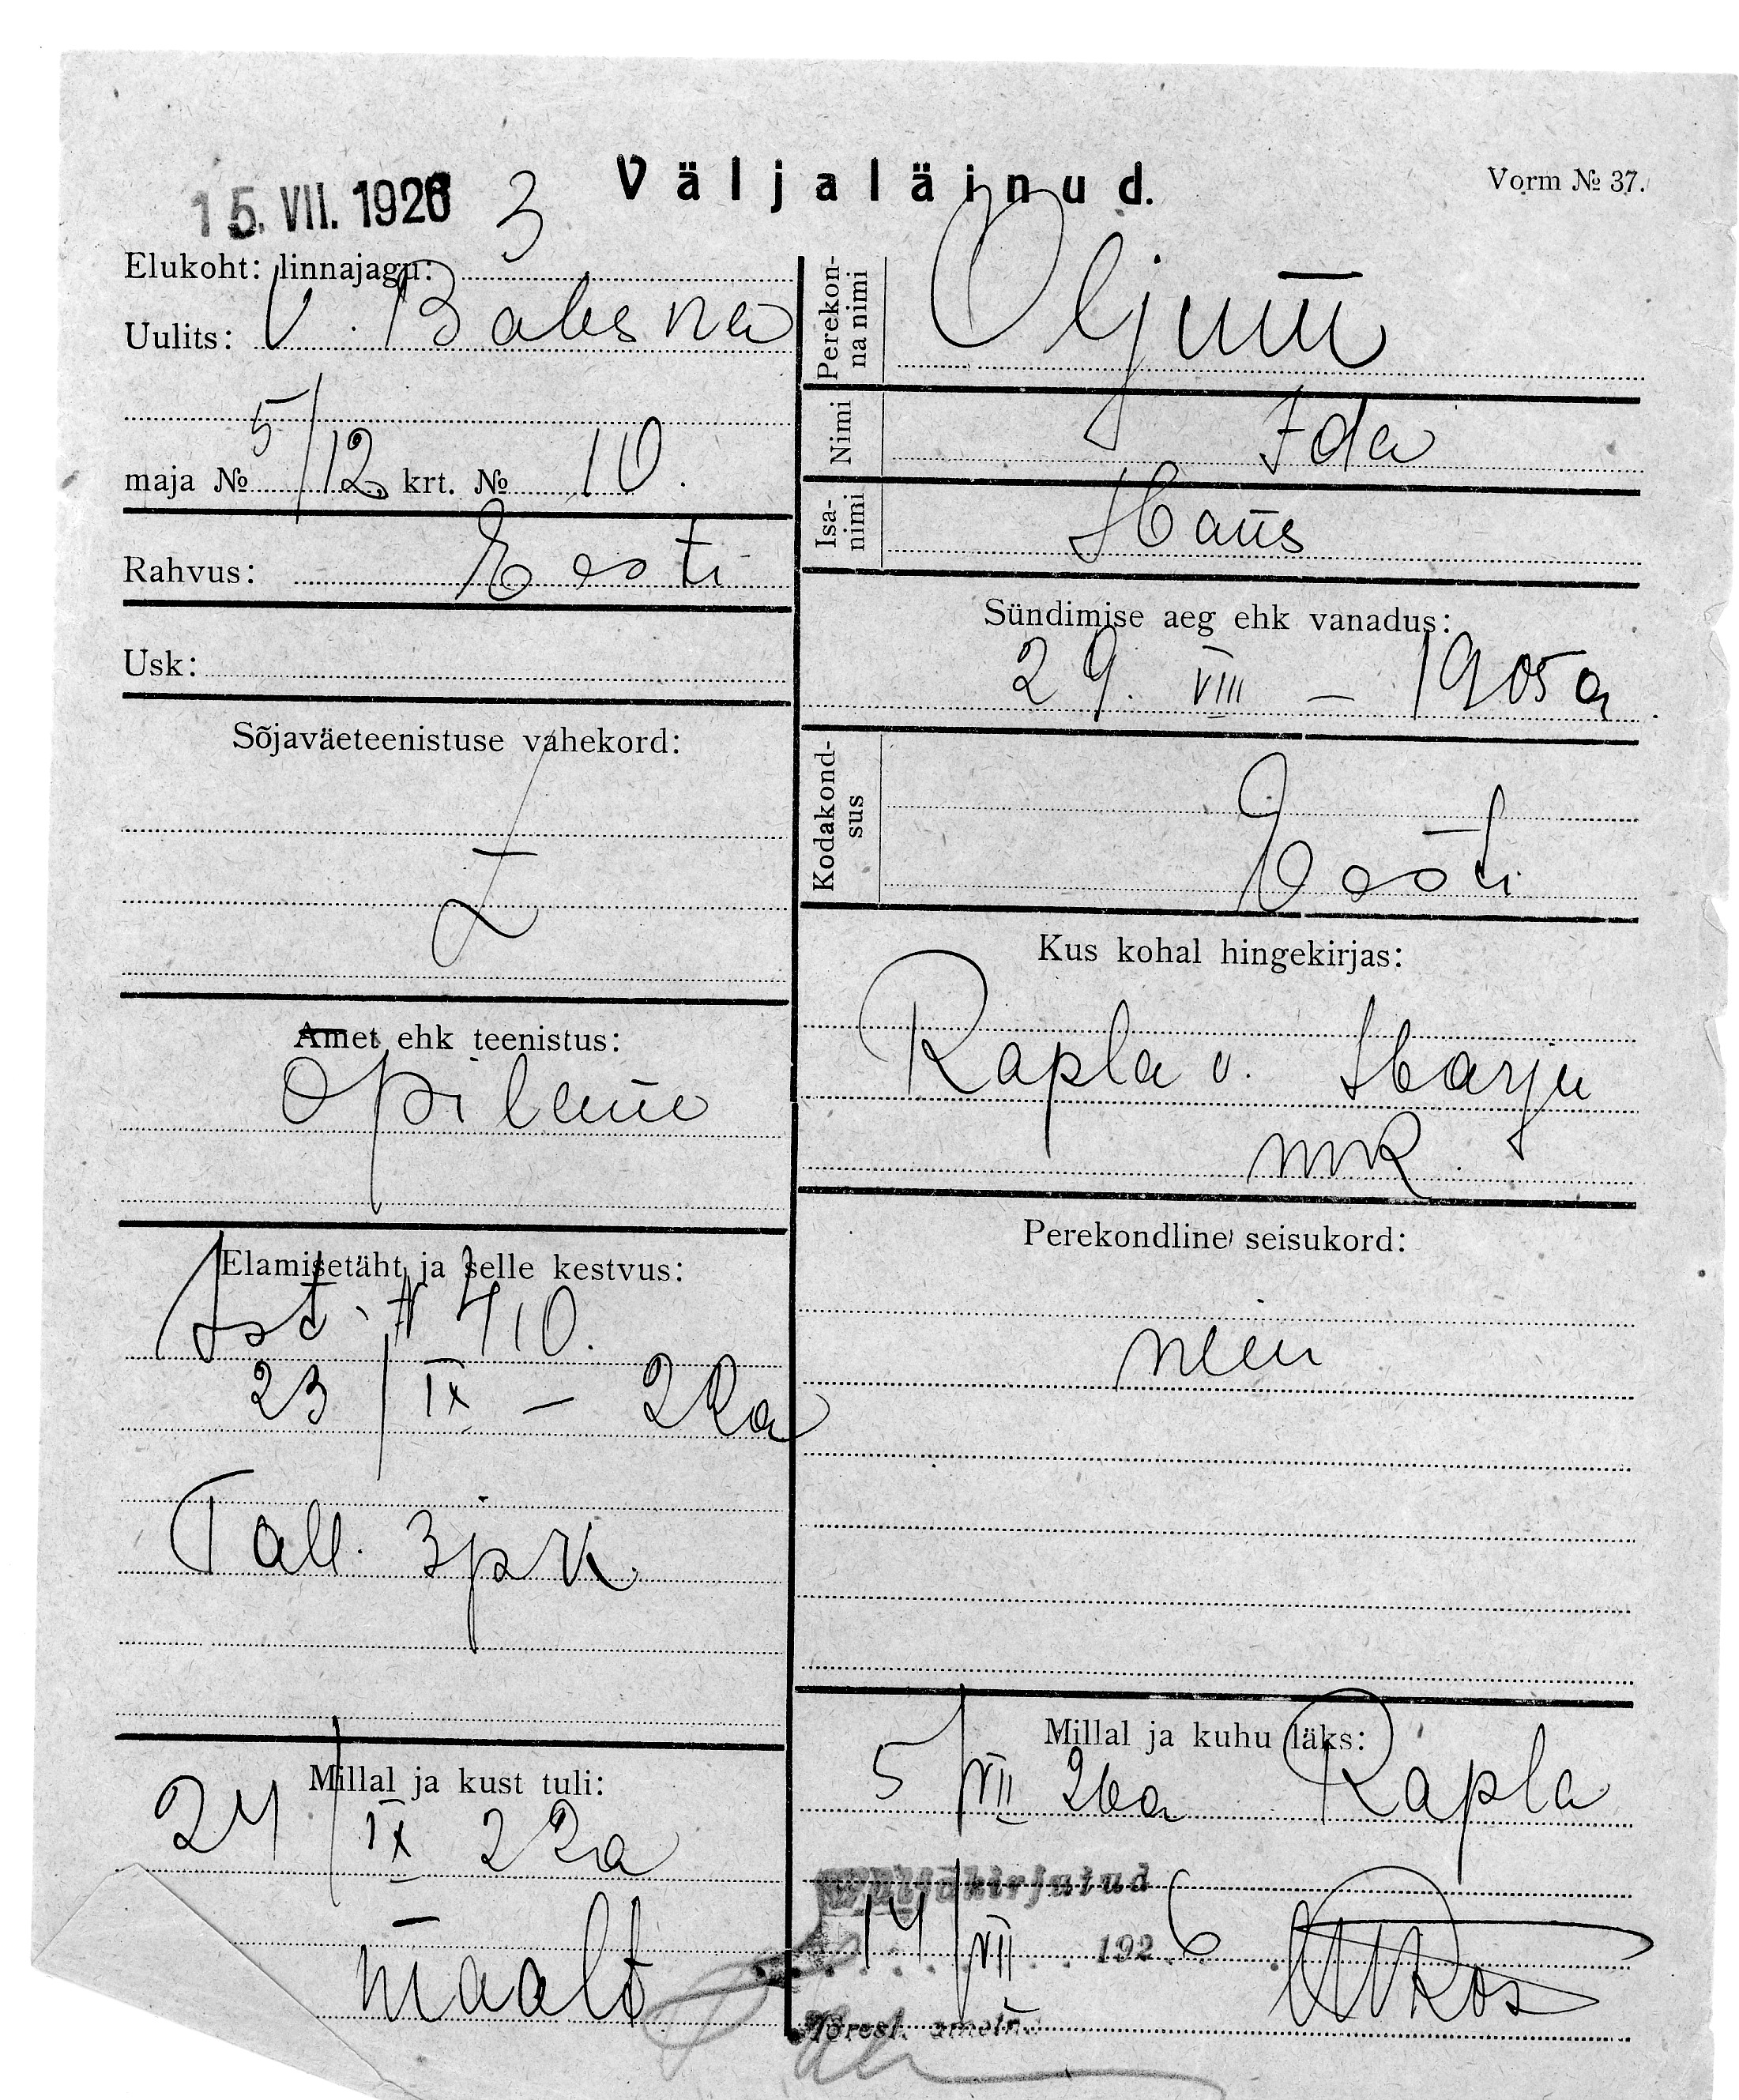 Väljaläinud.
Vorm № 37.
15. VII. 1926
Elukoht: linnajagu: 3
Uulits: V. Batesna
maja № 5/12 krt. № 10.
Rahvus: Eesti
Usk:
Sõjaväeteenistuse vahekord:
Amet ehk teenistus:
Opilane
Elamisetäht ja selle kestvus:
Ist. № 410.
23/IX – 22a
Tall. 3 jsk
Millal ja kust tuli:
24/IX 22a
maalt
Perekonna nimi
Oljum
Nimi
Ida
Isanimi
Hans
Sündimise aeg ehk vanadus:
29. VIII – 1905a
Kodakondsus
Eesti
Kus kohal hingekirjas:
Rapla v. Harju
mk.
Perekondline seisukord:
neiu
Millal ja kuhu läks:
5/VII 26a Rapla
Väljakirjutud
14/VII 1926